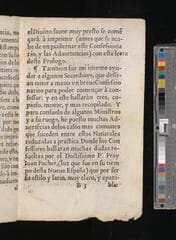 el Diuino fauor muy presto se comẽ
çarà à imprimir (antes que se aca-
be de enquadernar este Confessona
rio, y las Aduertencias) con esta fuera
deste Prologo.
¶ Tambien fue mi intento ayu-
dar a algunos Sacerdotes, que dessea-
uan tener a mano vn breue Confessio
nario para poder començar à con-
fessar: y en este hallarán tres, co-
pioso, mentor, y mas recopilado. Y
para consuelo de algunos Ministros
y a su ruego, he puesto muchas Ad-
uertẽcias delos casos mas comunes
que suceden entre estos Naturales
reduzidas a practica. Donde los Con
fessores hallaran muchas dudas re-
sueltas por el Doctissimo P. Fray
Juan Focher, (luz que fue en su tiem
po desta Nueua España) que por ser
su estilo y latin, muy claro, y
B 3